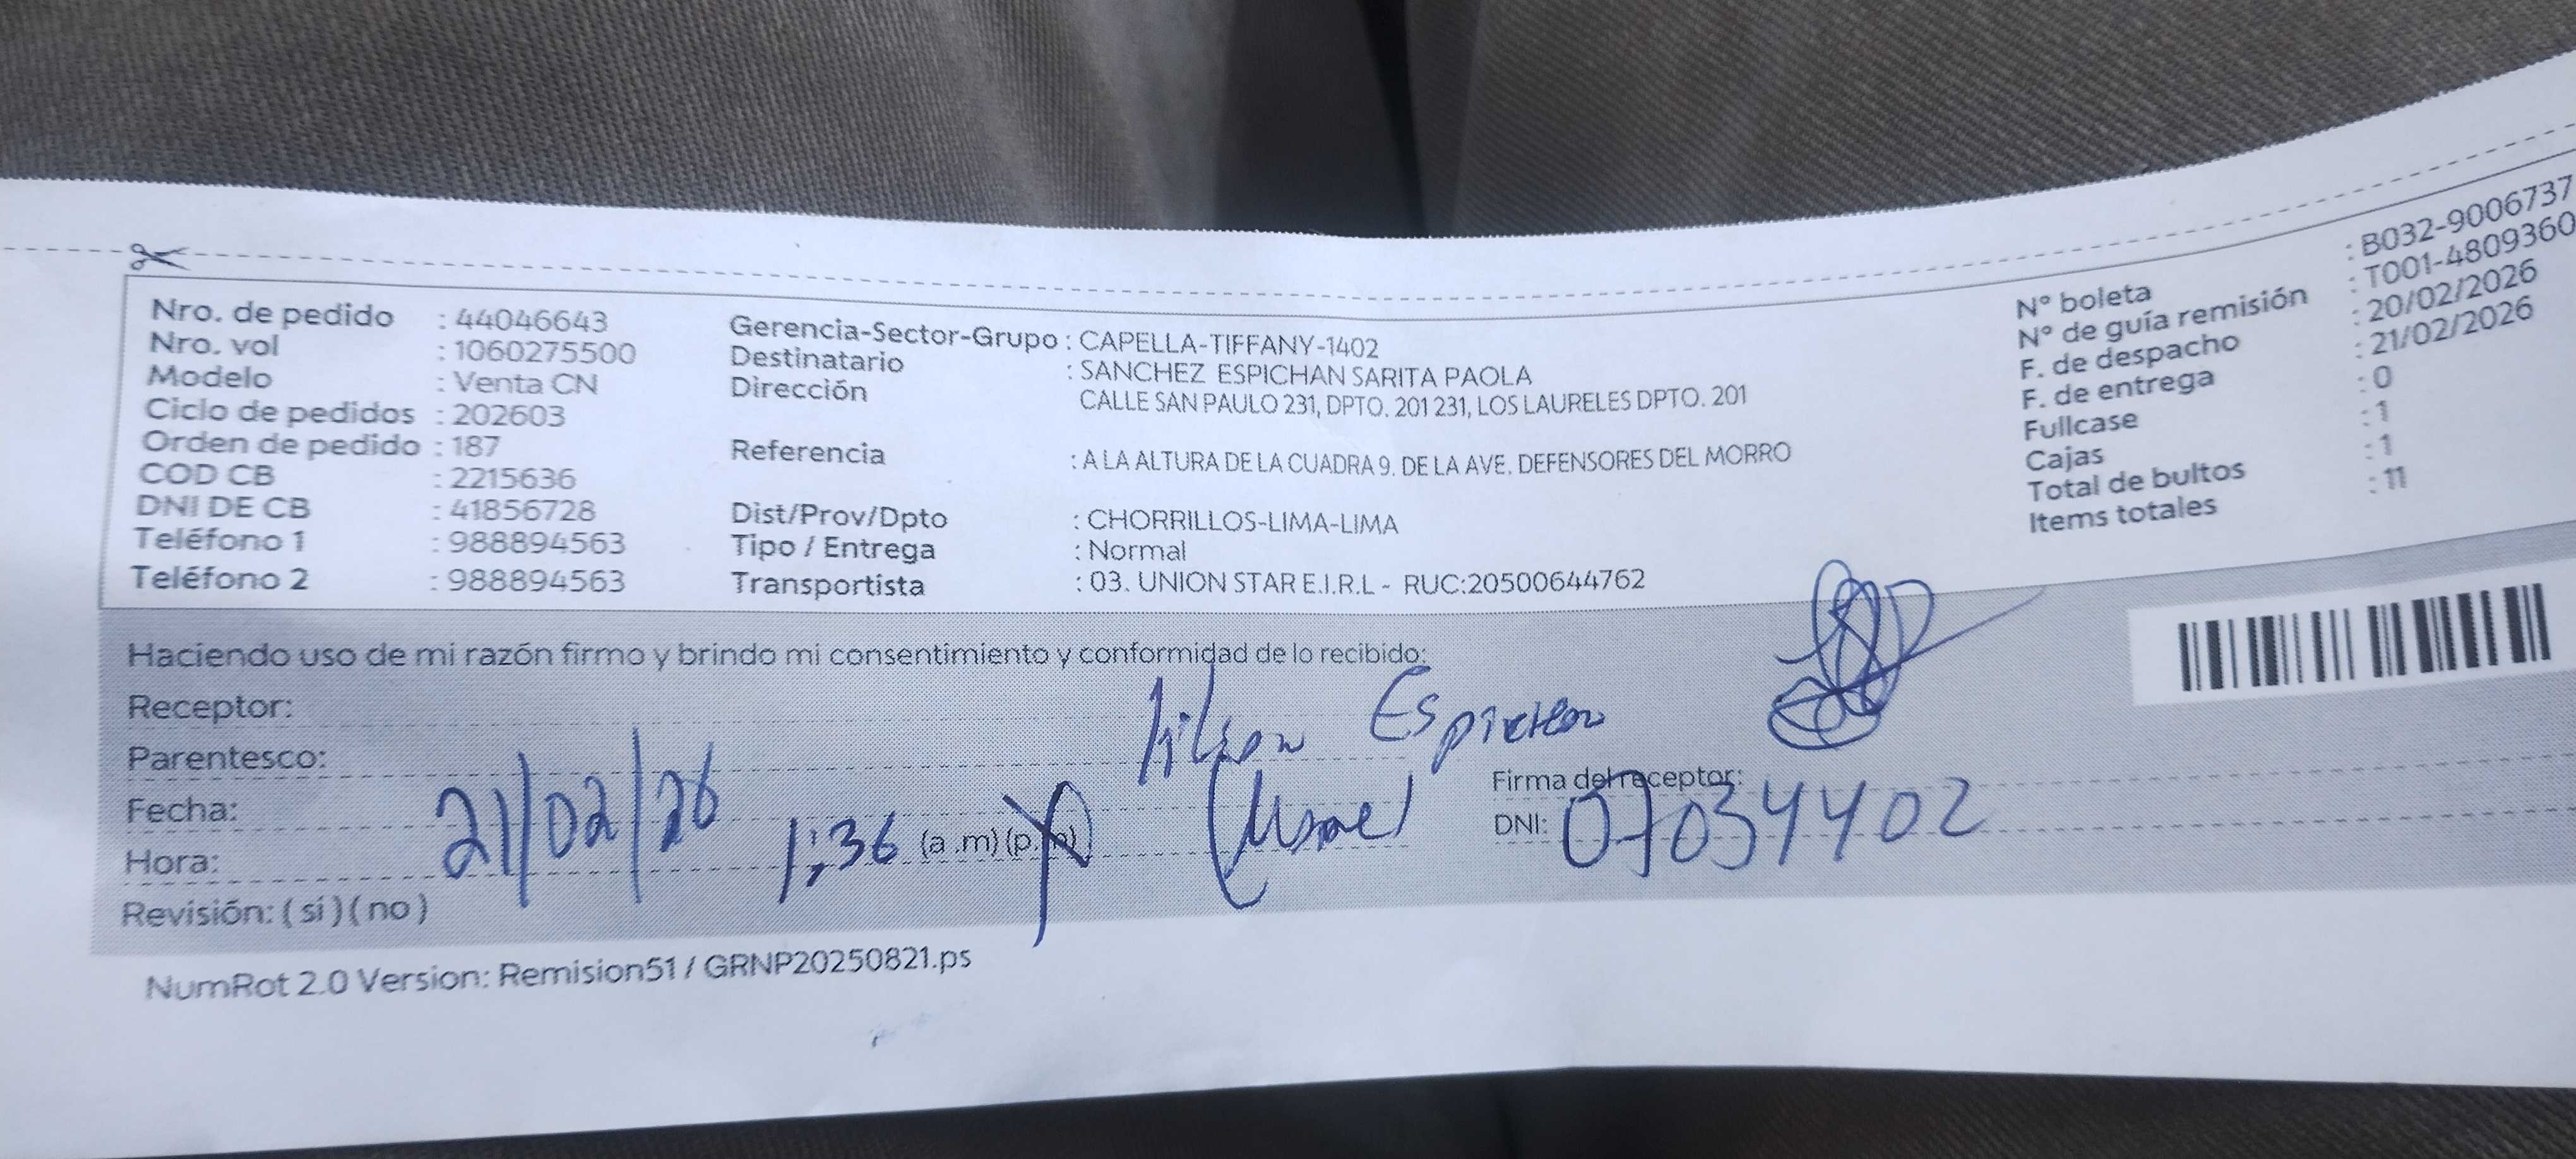 Nro. de pedido : 44046643
Nro. vol : 1060275500
Modelo : Venta CN
Ciclo de pedidos : 202603
Orden de pedido : 187
COD CB : 2215636
DNI DE CB : 41856728
Teléfono 1 : 988894563
Teléfono 2 : 988894563
Gerencia-Sector-Grupo : CAPELLA-TIFFANY-1402
Destinatario : SANCHEZ ESPICHAN SARITA PAOLA
Dirección CALLE SAN PAULO 231, DPTO. 201 231, LOS LAURELES DPTO. 201
Referencia : A LA ALTURA DE LA CUADRA 9. DE LA AVE. DEFENSORES DEL MORRO
Dist/Prov/Dpto : CHORRILLOS-LIMA-LIMA
Tipo / Entrega : Normal
Transportista : 03. UNION STAR E.I.R.L - RUC:20500644762
N° boleta : B032-9006737
N° de guía remisión : T001-4809360
F. de despacho : 20/02/2026
F. de entrega : 21/02/2026
Fullcase : 0
Cajas : 1
Total de bultos : 1
Items totales : 11
Haciendo uso de mi razón firmo y brindo mi consentimiento y conformidad de lo recibido:
Receptor:
Parentesco:
Fecha: 21/02/26
Hora: 1:36 (a.m)(p.m)
Revisión: (si)(no)
Firma del receptor:
DNI: 07034402
NumRot 2.0 Version: Remision51 / GRNP20250821.ps